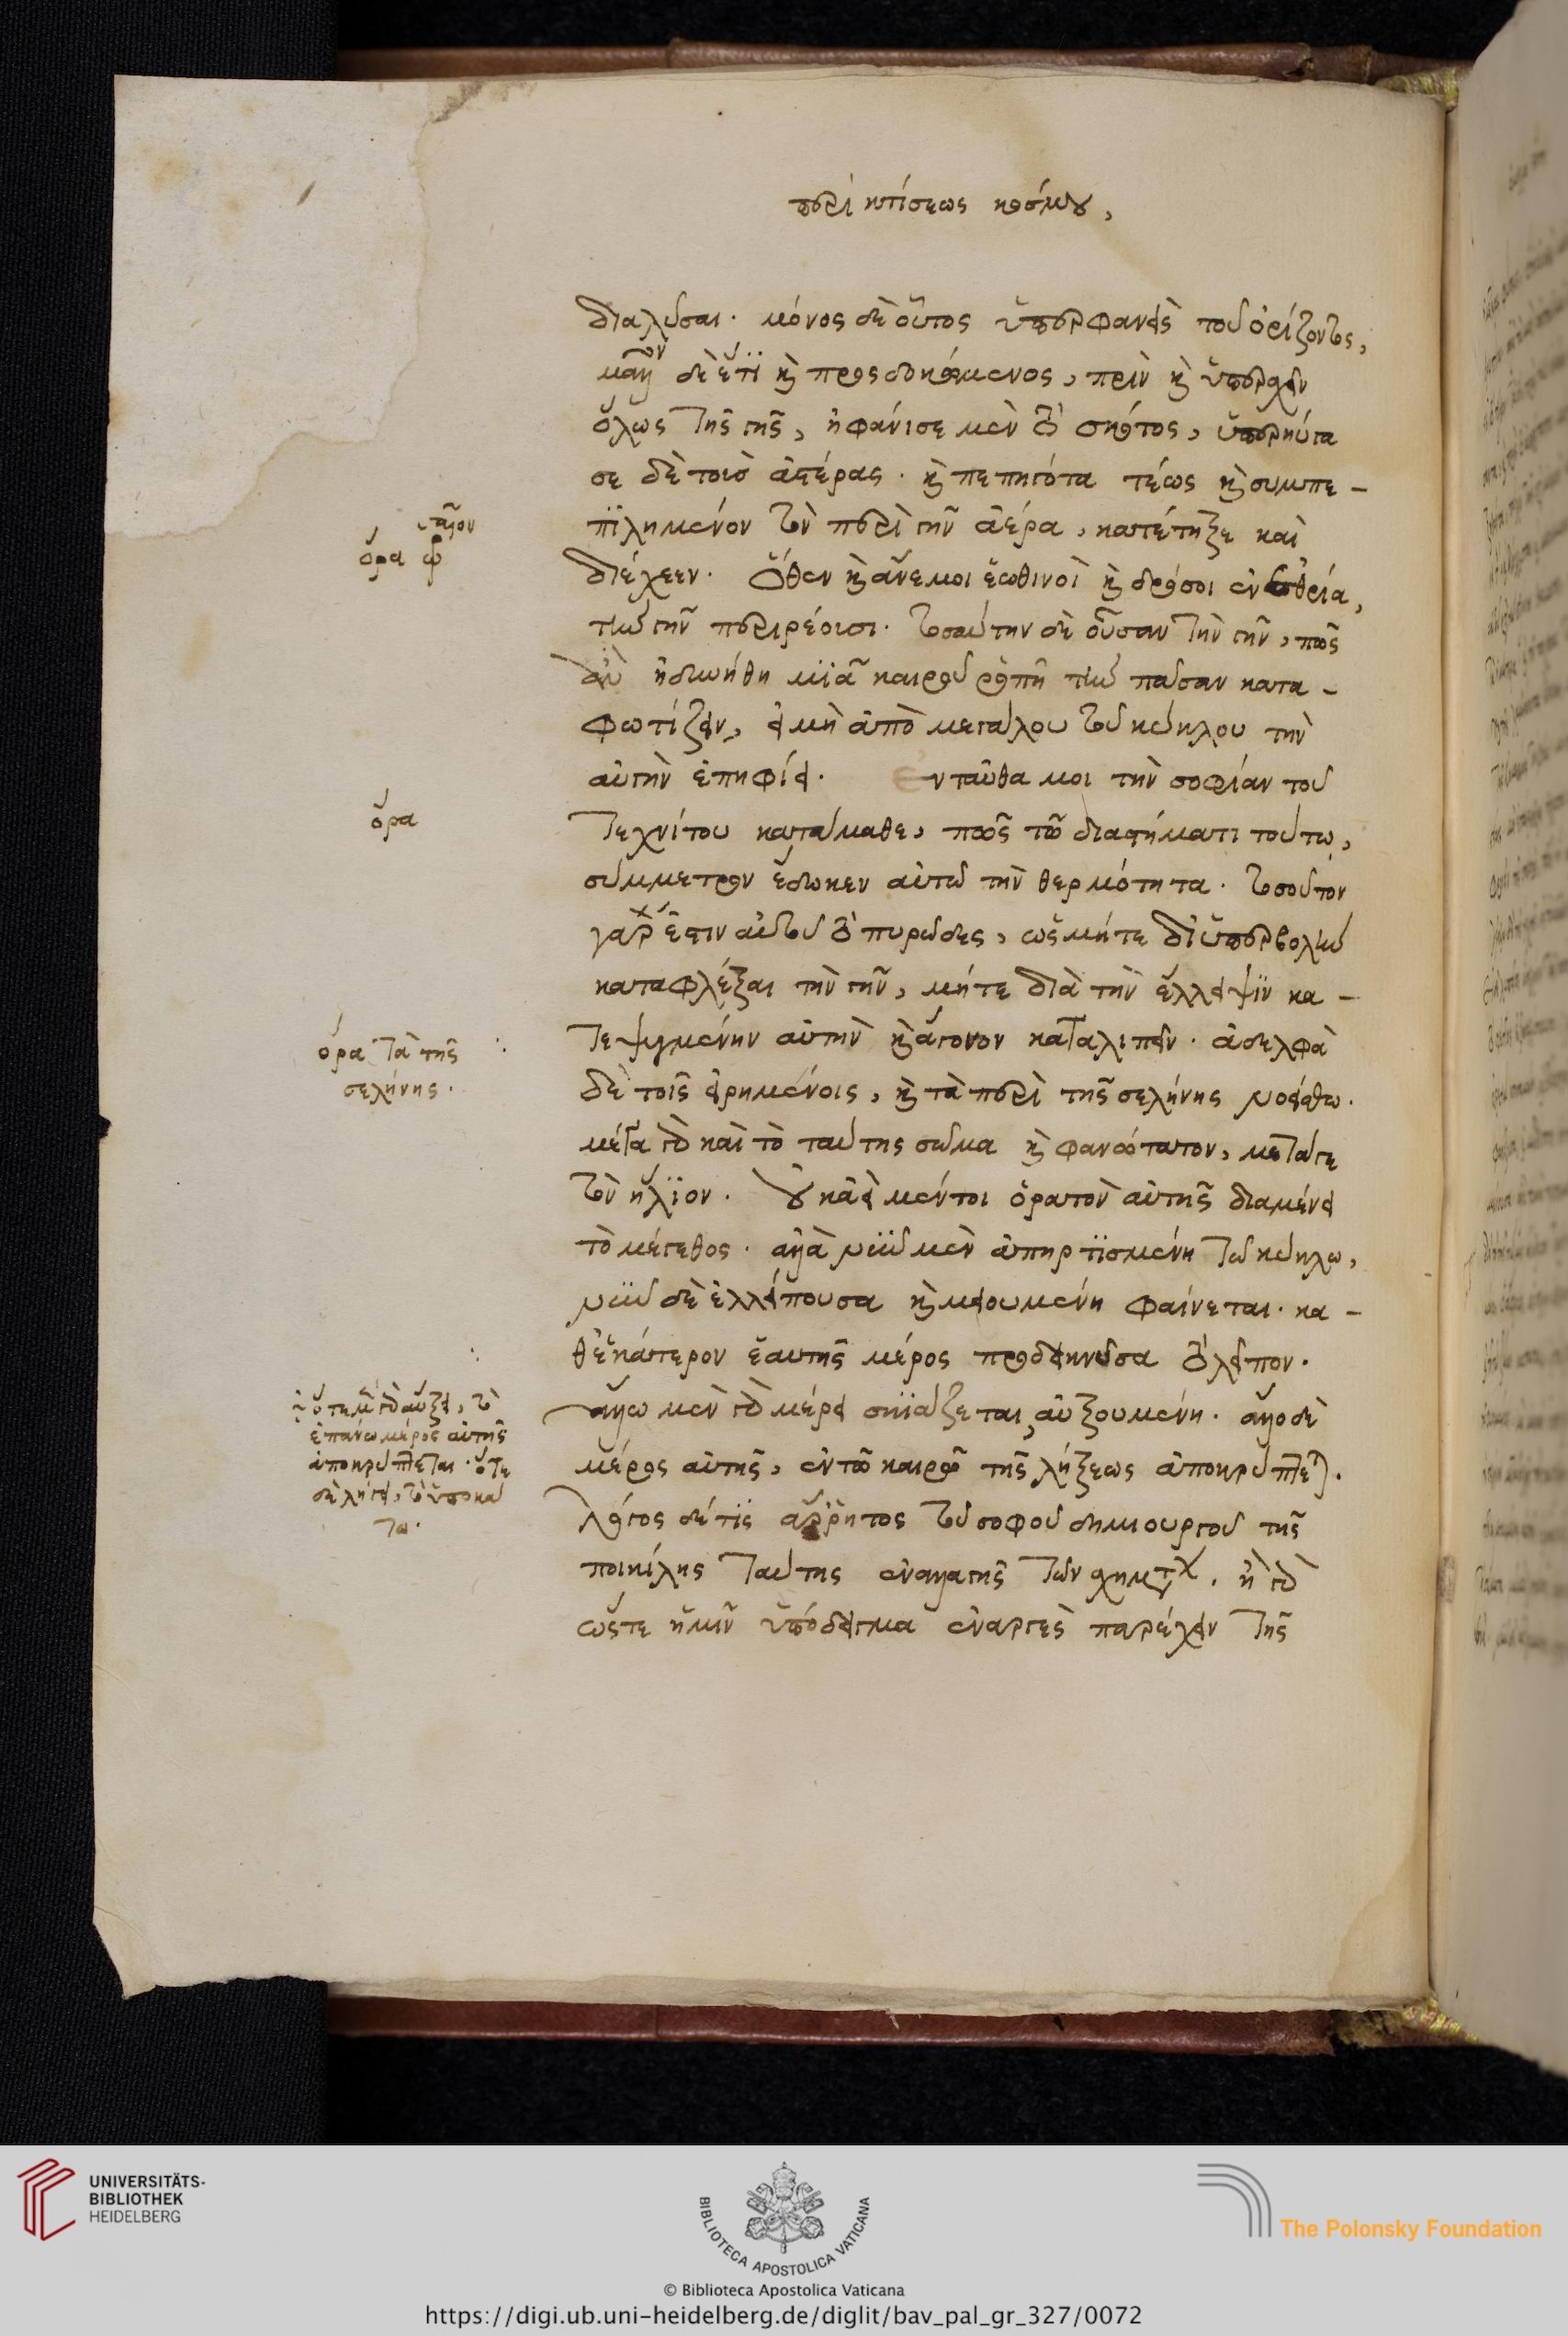 περὶ κτίσεως κόσμου,
διαλῦσαι. μόνος δὲ οὗτος ὑπερφανεὶς τοῦ ὁρίζοντος,
μᾶλλον δὲ ἔτι καὶ προσδοκώμενος, πρὶν καὶ ὑπερσχεῖν
ὅλως τῆς γῆς, ἠφάνισε μὲν τὸ σκότος, ὑπερηύγα
σε δὲ τοὺς ἀστέρας. καὶ πεπηγότα τέως καὶ συμπε-
πϊλημένον τὸν περὶ γῆν ἀέρα, κατέτηξε καὶ
διέχεεν. ὅθεν καὶ ἄνεμοι ἑωθινοὶ καὶ δρόσοι ἐν αἰθρία,
τὴν γῆν περιρέουσι. τοσαύτην δὲ οὖσαν τὴν γῆν, πῶς
ἂν ἠδυνήθη μϊᾶ καιροῦ ῥοπῇ τὴν πᾶσαν κατα-
φωτίζειν, εἰ μὴ ἀπὸ μεγάλου τοῦ κύκλου τὴν
αὐγὴν ἐπηφίει. ἐνταῦθα μοι τὴν σοφίαν τοῦ
τεχνίτου κατάμαθε, πῶς τῶ διαστήματι τούτω,
σύμμετρον ἔδωκεν αὐτῶ τὴν θερμότητα. τοσοῦτον
γάρ ἐστιν αὐτοῦ τὸ πυρῶδες, ὡς μήτε δι' ὑπερβολὴν
καταφλέξαι τὴν γῆν, μήτε διὰ τὴν ἔλλειψϊν κα-
τεψυγμένην αὐτὴν καὶ ἄγονον καταλιπεῖν. ἀδελφὰ
δὲ τοῖς εἰρημένοις, καὶ τὰ περὶ τῆς σελήνης νοείσθω.
μέγα γὰρ καὶ τὸ ταύτης σῶμα καὶ φανώτατον, μετά γε
τὸν ἥλϊον. οὐκ ἀεὶ μέντοι ὁρατὸν αὐτῆς διαμένει
τὸ μέγεθος. ἀλλὰ νῦν μὲν ἀπηρτϊσμένη τῶ κύκλω,
νῦν δὲ ἐλλείπουσα καὶ μειουμένη φαίνεται. κα-
θ' ἑκάτερον ἑαυτῆς μέρος προδεικνῦσα τὸ λεῖπον.
ἄλλω μὲν γὰρ μέρει σκϊάζεται, αὐξουμένη. ἄλλο δὲ
μέρος αὐτῆς, ἐν τῶ καιρῶ τῆς λήξεως ἀποκρύπτεται.
λόγος δέ τϊς ἄρρητος τοῦ σοφοῦ δημιουργοῦ τῆς
ποικίλης ταύτης ἐναλλαγῆς τῶν σχημάτων. ἢ γὰρ
ὥστε ἡμῖν ὑπόδειγμα ἐναργὲς παρέχειν τῆς
ὅρα
ὅρα
ὅρα τὰ τῆς
σελήνης.
ὅτε μὲν γὰρ αὔξει, τὸ
ἐπάνω μέρος αὐτῆς
ἀποκρύπτεται. ὅτε
δὲ λήγει, τὸ ὑποκά
τω.
UNIVERSITÄTS-
BIBLIOTHEK
HEIDELBERG
BIBLIOTECA APOSTOLICA VATICANA
© Biblioteca Apostolica Vaticana
The Polonsky Foundation
https://digi.ub.uni-heidelberg.de/diglit/bav_pal_gr_327/0072